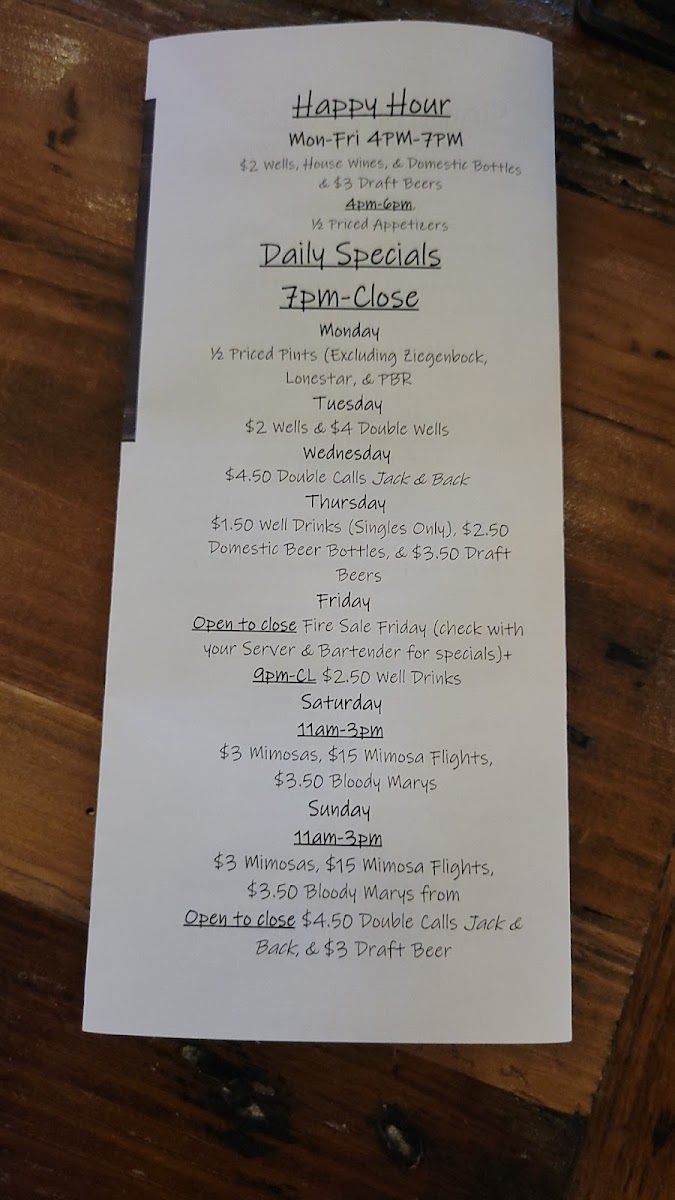 Happy Hour
Mon-Fri 4PM-7PM
$2 Wells, House Wines, & Domestic Bottles
& $3 Draft Beers
4pm-6pm
½ Priced Appetizers
Daily Specials
7pm-Close
Monday
½ Priced Pints (Excluding Ziegenbock,
Lonestar, & PBR
Tuesday
$2 Wells & $4 Double Wells
Wednesday
$4.50 Double Calls Jack & Back
Thursday
$1.50 Well Drinks (Singles Only), $2.50
Domestic Beer Bottles, & $3.50 Draft
Beers
Friday
Open to close Fire Sale Friday (check with
your Server & Bartender for specials)+
9pm-CL $2.50 Well Drinks
Saturday
11am-3pm
$3 Mimosas, $15 Mimosa Flights,
$3.50 Bloody Marys
Sunday
11am-3pm
$3 Mimosas, $15 Mimosa Flights,
$3.50 Bloody Marys from
Open to close $4.50 Double Calls Jack &
Back, & $3 Draft Beer